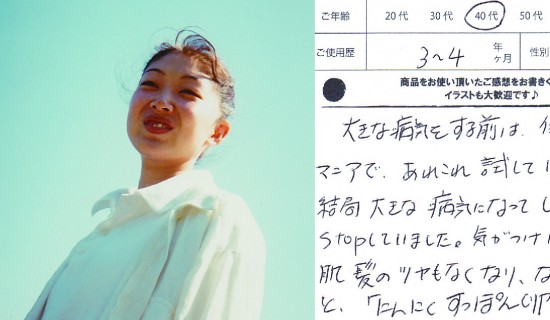 ご年齢 20代 30代 40代 50代
ご使用歴 3〜4 年 ヶ月 性別
商品をお使い頂いたご感想をお書きく
イラストも大歓迎です♪
大きな病気をする前は、
マニアで、あれこれ試して
結局 大きな 病気になって し
stopしていました。気がつけ
肌 髪のツヤもなくなり、な
と、「にんにくすっぽん